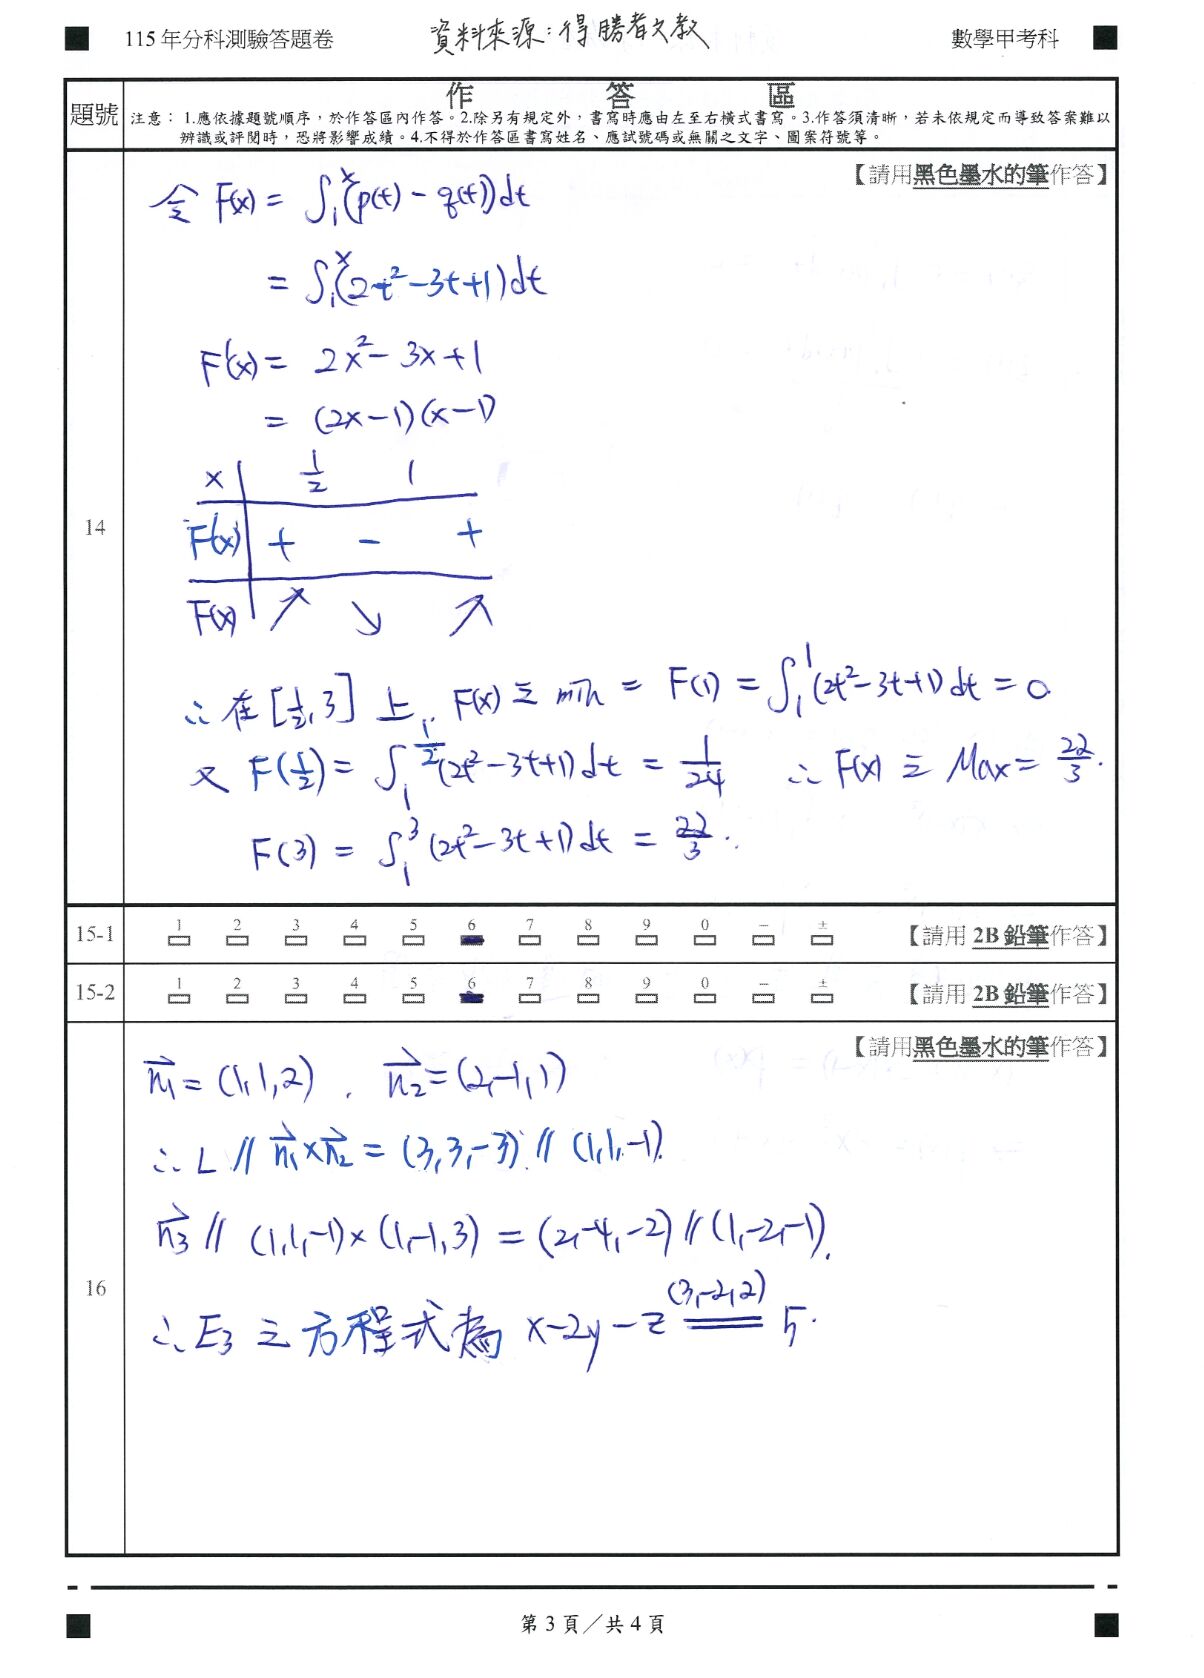 115年分科測驗答題卷 資料來源:得勝者文教 數學甲考科
題號 作答區
注意：1.應依據題號順序，於作答區內作答。2.除另有規定外，書寫時應由左至右橫式書寫。3.作答須清晰，若未依規定而導致答案難以
辨識或評閱時，恐將影響成績。4.不得於作答區書寫姓名、應試號碼或無關之文字、圖案符號等。
【請用黑色墨水的筆作答】
14
令 F(x) = ∫₁ˣ(p(t) - q(t))dt
= ∫₁ˣ(2t²-3t+1)dt
F'(x) = 2x² - 3x + 1
= (2x-1)(x-1)
x 1/2 1
F'(x) + - +
F(x) ↗ ↘ ↗
∴在[1/2, 3]上, F(x)之min = F(1) = ∫₁¹(2t²-3t+1)dt = 0
又 F(1/2) = ∫₁^(1/2)(2t²-3t+1)dt = 1/24 ∴ F(x)之Max = 22/3.
F(3) = ∫₁³(2t²-3t+1)dt = 22/3.
15-1 1 2 3 4 5 6 7 8 9 0 － ± 【請用 2B 鉛筆作答】
15-2 1 2 3 4 5 6 7 8 9 0 － ± 【請用 2B 鉛筆作答】
【請用黑色墨水的筆作答】
16
n₁⃗ = (1,1,2), n₂⃗ = (2,-1,1)
∴ L // n₁⃗×n₂⃗ = (3,3,-3) // (1,1,-1).
n₃⃗ // (1,1,-1)×(1,-1,3) = (2,-4,-2) // (1,-2,-1).
(3,-2,2)
∴E₃之方程式為 x-2y-z = 5.
第3頁／共4頁